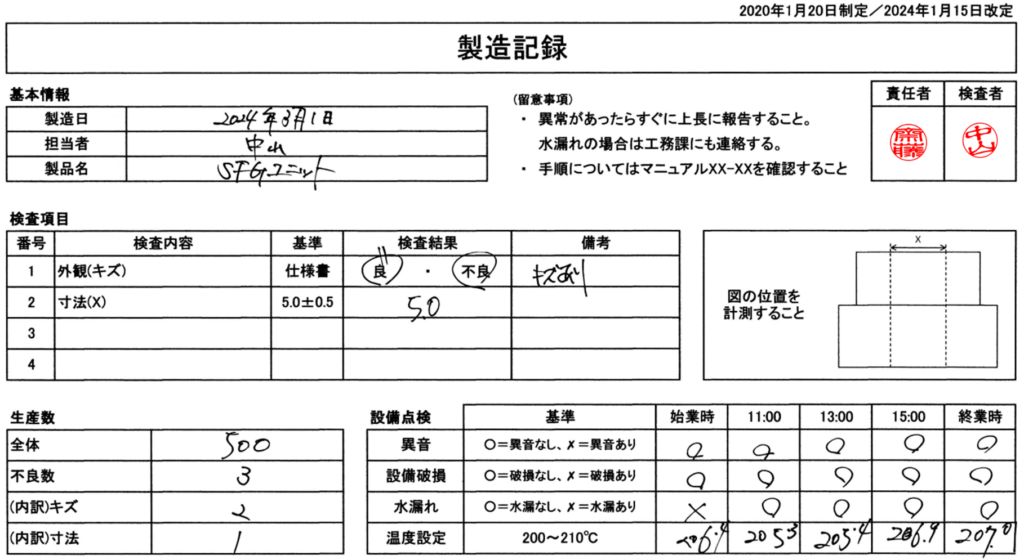 2020年1月20日制定／2024年1月15日改定
製造記録
基本情報
製造日 2024年3月1日
担当者 中山
製品名 SFGユニット
(留意事項)
・ 異常があったらすぐに上長に報告すること。
水漏れの場合は工務課にも連絡する。
・ 手順についてはマニュアルXX-XXを確認すること
責任者 検査者
齋藤 中山
検査項目
番号 検査内容 基準 検査結果 備考
1 外観(キズ) 仕様書 良 ・ 不良 キズあり
2 寸法(X) 5.0±0.5 5.0
3
4
X
図の位置を
計測すること
生産数
全体 500
不良数 3
(内訳)キズ 2
(内訳)寸法 1
設備点検 基準 始業時 11:00 13:00 15:00 終業時
異音 〇＝異音なし、✗＝異音あり 〇 〇 〇 〇 〇
設備破損 〇＝破損なし、✗＝破損あり 〇 〇 〇 〇 〇
水漏れ 〇＝水漏なし、✗＝水漏あり ✗ 〇 〇 〇 〇
温度設定 200～210℃ 206.4 205.3 205.4 206.9 207.0